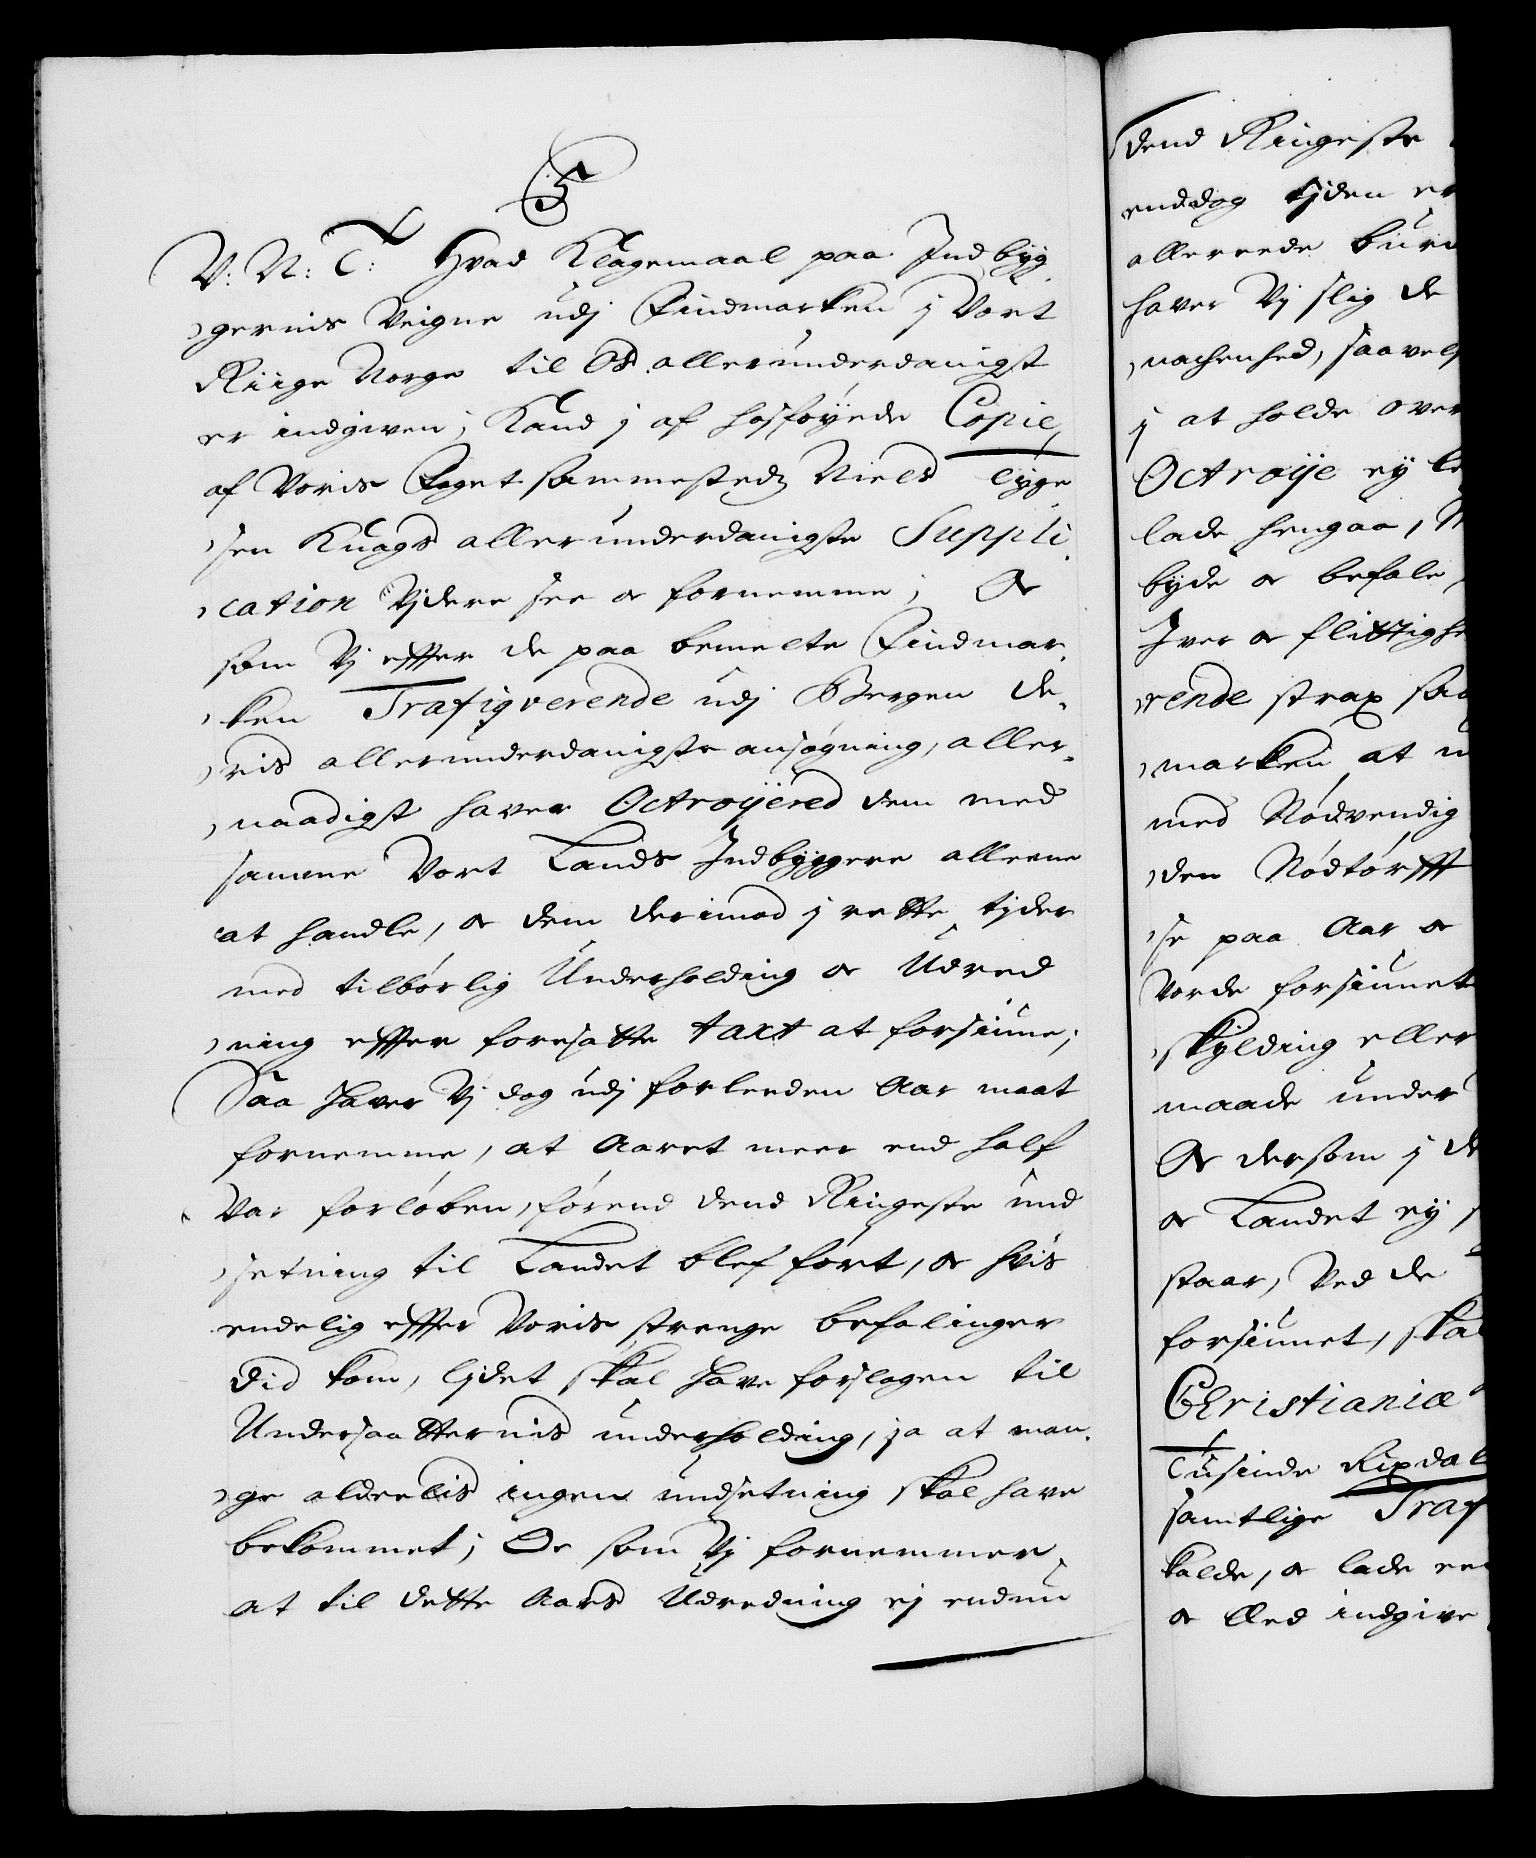 V: N: T: Hvad Klagemaal paa Indbyg
gernis Veigne udj Findmarken j Vort
Riige Norge til Os allerunderdanigst
er indgiven; Kand j af hosføyede Copie,
af Voris Foget sammestedz Niels
sen Knags allerunderdanigste Suppli
cation Vjdere see oc fornemme; Oc
som Vj effter de paa bemelte Findmar
ken Trafiqverende udj Bergen de
ris allerunderdanigste ansøgning, aller
naadigst haver Octroÿered dem med
samme Vort Lands Indbyggere alleene
at handle, oc dem derimod j rette tjder
med tilbørlig Underholding oc Udred
ning effter foresatte taxt at forsiune;
Saa haver Vj dog udj forleeden Aar maat
fornemme, at Aaret meer end half
Var forløben, førend dend Ringeste und
setning til Landet blef ført, oc hvis
endelig effter Voris strenge befalinger
did kom, ljdet skal have forslagen til
Undersaatternis underholding, ja at man
ge aldeelis ingen undsetning skal have
bekommet; Oc som Vj fornemmer
at til dette Aars Udredning ej endnu
dend Ringeste
enddog tjden er
allereede
haver Vj slig de
saavel
j at holde over
Octroije ey
lade hengaa,
byde oc befale,
Iver oc flittighe
rende strax
marken at
med Nødvendig
den Nødtørfft
se paa Aar oc
Vorde forsiunet
skylding eller
maade under
Oc dersom j de
oc Landet ey
staar, Ved de
forsiunet, skal
Christianiæ
Tusinde Rixdal
samtlige Traf
kalde, oc lade
oc Eed indgive